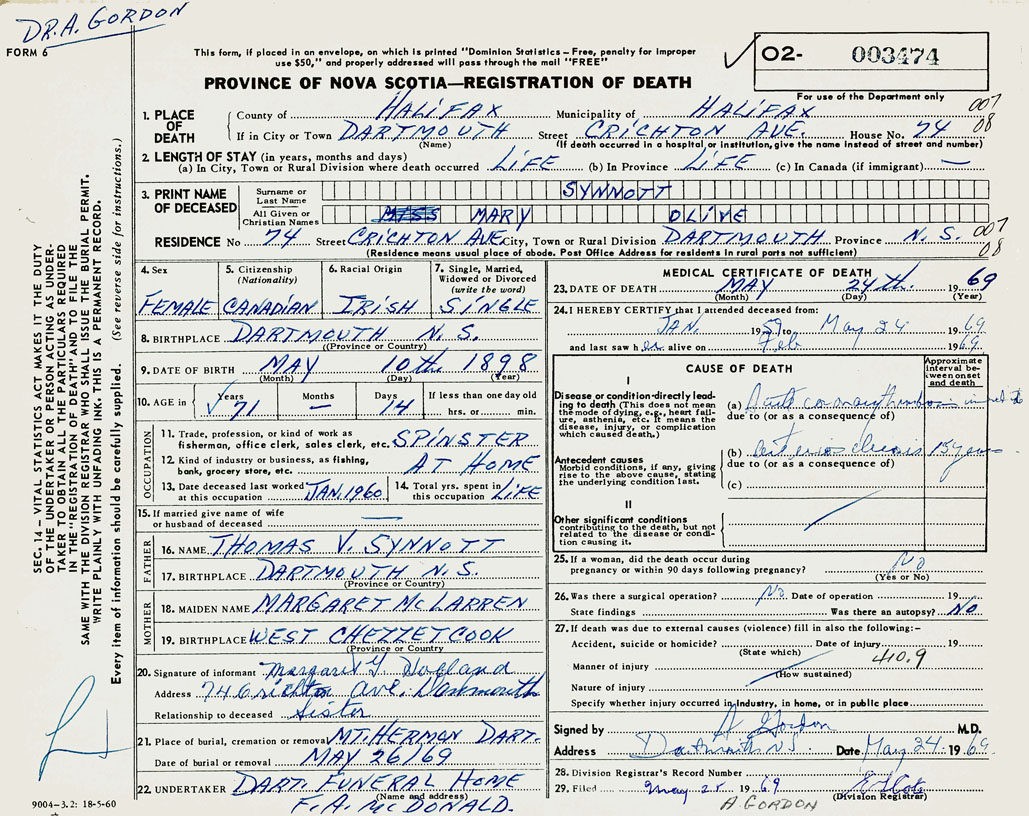 DR. A. GORDON
FORM 6
This form, if placed in an envelope, on which is printed "Dominion Statistics – Free, penalty for improper
use $50," and properly addressed will pass through the mail "FREE"
PROVINCE OF NOVA SCOTIA—REGISTRATION OF DEATH
02- 003474
For use of the Department only
007
08
1. PLACE OF DEATH
County of HALIFAX Municipality of HALIFAX
If in City or Town DARTMOUTH Street CRICHTON AVE. House No. 74
(Name) (If death occurred in a hospital or institution, give the name instead of street and number)
2. LENGTH OF STAY (in years, months and days)
(a) In City, Town or Rural Division where death occurred LIFE (b) In Province LIFE (c) In Canada (if immigrant) —
3. PRINT NAME OF DECEASED
Surname or Last Name SYNNOTT
All Given or Christian Names MISS MARY OLIVE
RESIDENCE No 74 Street CRICHTON AVE City, Town or Rural Division DARTMOUTH Province N. S.
007
08
(Residence means usual place of abode. Post Office Address for residents in rural parts not sufficient)
4. Sex FEMALE
5. Citizenship (Nationality) CANADIAN
6. Racial Origin IRISH
7. Single, Married, Widowed or Divorced (write the word) SINGLE
8. BIRTHPLACE DARTMOUTH N. S.
(Province or Country)
9. DATE OF BIRTH MAY 10th 1898
(Month) (Day) (Year)
10. AGE in Years 71 Months — Days 14 If less than one day old hrs. or min.
OCCUPATION
11. Trade, profession, or kind of work as fisherman, office clerk, sales clerk, etc. SPINSTER
12. Kind of industry or business, as fishing, bank, grocery store, etc. AT HOME
13. Date deceased last worked at this occupation JAN. 1960
14. Total yrs. spent in this occupation LIFE
15. If married give name of wife or husband of deceased —
FATHER
16. NAME THOMAS V. SYNNOTT
17. BIRTHPLACE DARTMOUTH N. S.
(Province or Country)
MOTHER
18. MAIDEN NAME MARGARET McLARREN
19. BIRTHPLACE WEST CHEZZETCOOK
(Province or Country
20. Signature of informant Margaret
Address 74 Crichton Ave, Dartmouth
Relationship to deceased Sister
21. Place of burial, cremation or removal MT. HERMON DART.
Date of burial or removal MAY 26/69
22. UNDERTAKER DART. FUNERAL HOME
(Name and address)
F. A. McDONALD.
MEDICAL CERTIFICATE OF DEATH
23. DATE OF DEATH MAY 24th. 1969
(Month) (Day) (Year)
24. I HEREBY CERTIFY that I attended deceased from:
JAN. 1959 to May 24 1969
and last saw her alive on Feb 1969
CAUSE OF DEATH
Approximate interval between onset and death
I
Disease or condition directly leading to death (This does not mean the mode of dying, e.g., heart failure, asthenia, etc. It means the disease, injury, or complication which caused death.)
(a) Acute coronary thrombosis
due to (or as a consequence of)
Antecedent causes
Morbid conditions, if any, giving rise to the above cause, stating the underlying condition last.
(b) 15 years
due to (or as a consequence of)
(c)
II
Other significant conditions
contributing to the death, but not related to the disease or condition causing it.
25. If a woman, did the death occur during pregnancy or within 90 days following pregnancy? No
(Yes or No)
26. Was there a surgical operation? No. Date of operation 19
State findings Was there an autopsy? NO
27. If death was due to external causes (violence) fill in also the following:–
Accident, suicide or homicide? Date of injury 19
(State which)
410.9
Manner of injury
(How sustained)
Nature of injury
Specify whether injury occurred in industry, in home, or in public place
Signed by A Gordon M.D.
Address Dartmouth N.S. Date May 24 1969
28. Division Registrar's Record Number
29. Filed May 1969
(Division Registrar)
A GORDON
SEC. 14 – VITAL STATISTICS ACT MAKES IT THE DUTY
OF THE UNDERTAKER OR PERSON ACTING AS UNDER-
TAKER TO OBTAIN ALL THE PARTICULARS REQUIRED
IN THE "REGISTRATION OF DEATH" AND TO FILE THE
SAME WITH THE DIVISION REGISTRAR WHO SHALL ISSUE THE BURIAL PERMIT.
WRITE PLAINLY WITH UNFADING INK. THIS IS A PERMANENT RECORD.
Every item of information should be carefully supplied. (See reverse side for instructions.)
9004–3.2: 18-5-60